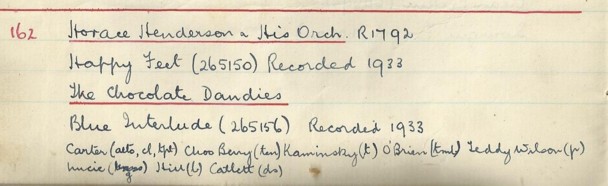 162 Horace Henderson & His Orch. R1792
Happy Feet (265150) Recorded 1933
The Chocolate Dandies
Blue Interlude (265156) Recorded 1933
Carter (alto, cl, tpt) Choo Berry (ten) Kaminsky (t) O'Brien (tmb) Teddy Wilson (p)
Hill (b) Catlett (ds)